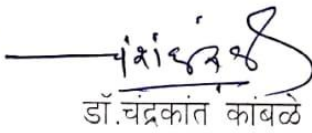 डॉ.चंद्रकांत कांबळे